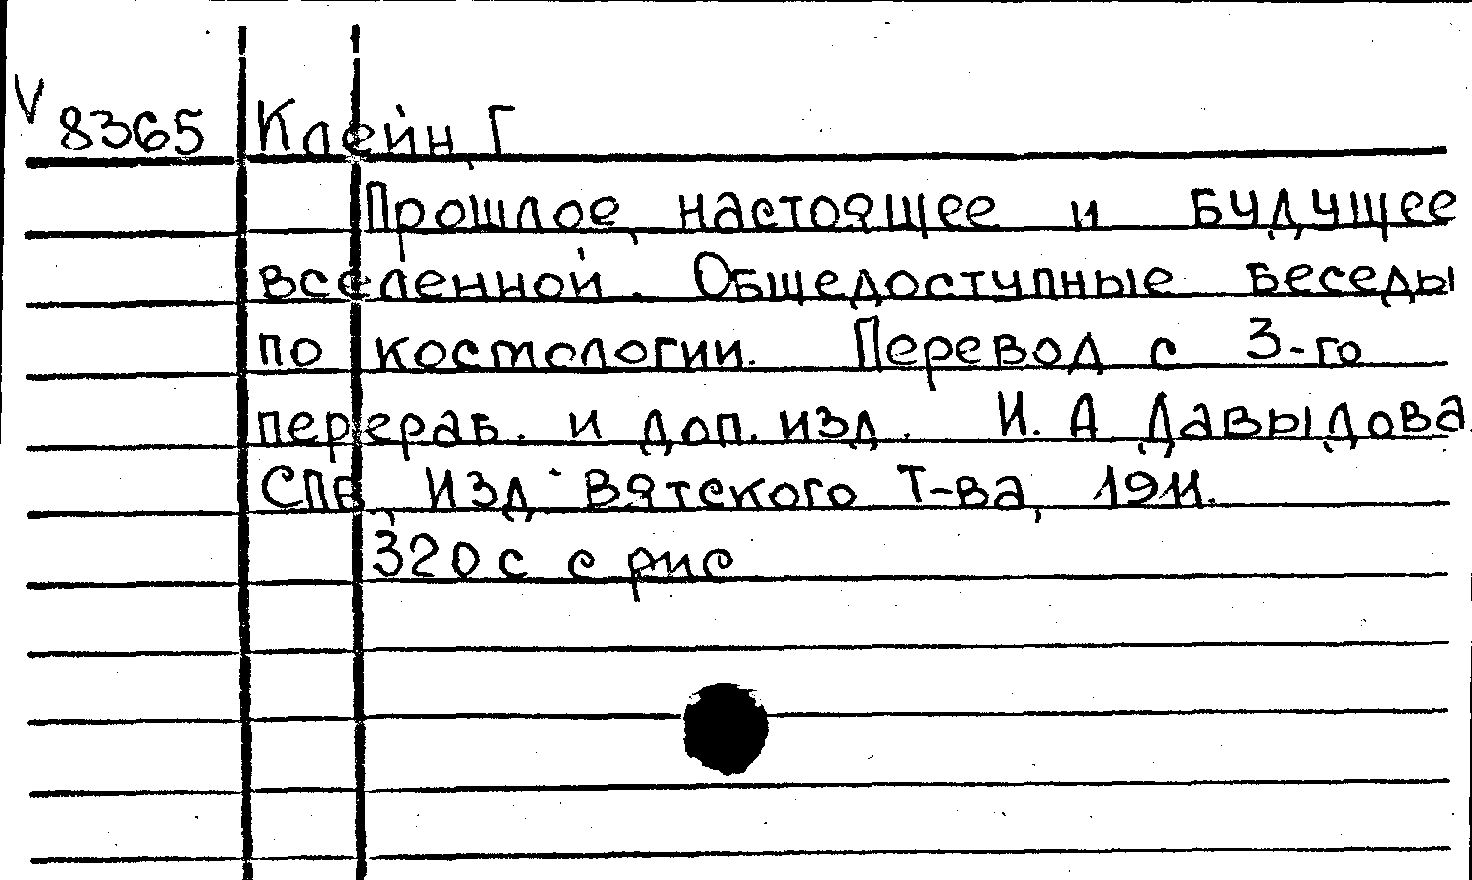 V 8365 Клейн, Г
Прошлое, настоящее и будущее
вселенной. Общедоступные беседы
по космологии. Перевод с 3-го
перераб. и доп. изд. И. А Давыдова.
СПб, Изд. Вятского Т-ва, 1911.
320 с с рис